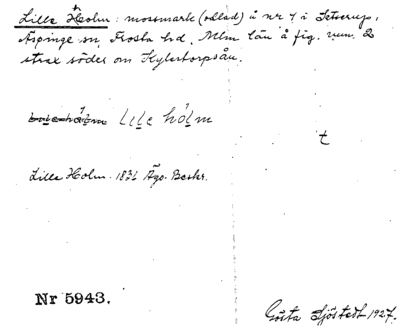 Lilla Holm: mossmark (odlad) å nr 4 i Seterup,
Äspinge sn, Frosta hd, Mlm län å fig. num. 2
strax söder om Kylestorpsån.
lile holm
t
Lilla Holm. 1831 Äго. Beskr.
Nr 5943.
Gösta Sjöstedt 1927.